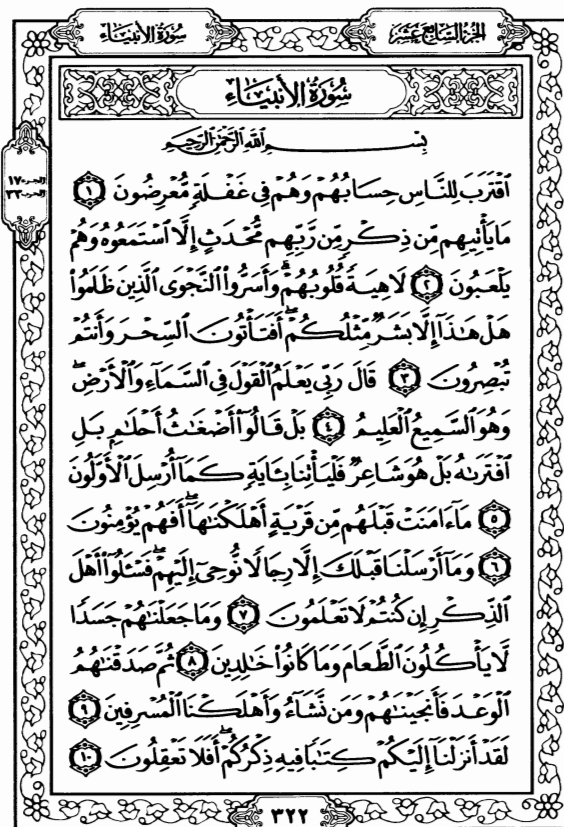 سُورَةُ الأَنبِيَاءِ
الجُزءُ السَّابِعَ عَشَرَ
سُورَةُ الأَنبِيَاءِ
الجزء ١٧
الحزب ٣٣
بِسْمِ ٱللَّهِ ٱلرَّحْمَٰنِ ٱلرَّحِيمِ
ٱقْتَرَبَ لِلنَّاسِ حِسَابُهُمْ وَهُمْ فِى غَفْلَةٍ مُّعْرِضُونَ ١
مَا يَأْتِيهِم مِّن ذِكْرٍ مِّن رَّبِّهِم مُّحْدَثٍ إِلَّا ٱسْتَمَعُوهُ وَهُمْ
يَلْعَبُونَ ٢ لَاهِيَةً قُلُوبُهُمْ ۗ وَأَسَرُّوا۟ ٱلنَّجْوَى ٱلَّذِينَ ظَلَمُوا۟
هَلْ هَٰذَآ إِلَّا بَشَرٌ مِّثْلُكُمْ ۖ أَفَتَأْتُونَ ٱلسِّحْرَ وَأَنتُمْ
تُبْصِرُونَ ٣ قَالَ رَبِّى يَعْلَمُ ٱلْقَوْلَ فِى ٱلسَّمَآءِ وَٱلْأَرْضِ ۖ
وَهُوَ ٱلسَّمِيعُ ٱلْعَلِيمُ ٤ بَلْ قَالُوٓا۟ أَضْغَٰثُ أَحْلَٰمٍۭ بَلِ
ٱفْتَرَىٰهُ بَلْ هُوَ شَاعِرٌ فَلْيَأْتِنَا بِـَٔايَةٍ كَمَآ أُرْسِلَ ٱلْأَوَّلُونَ
٥ مَآ ءَامَنَتْ قَبْلَهُم مِّن قَرْيَةٍ أَهْلَكْنَٰهَآ ۖ أَفَهُمْ يُؤْمِنُونَ
٦ وَمَآ أَرْسَلْنَا قَبْلَكَ إِلَّا رِجَالًا نُّوحِىٓ إِلَيْهِمْ ۖ فَسْـَٔلُوٓا۟ أَهْلَ
ٱلذِّكْرِ إِن كُنتُمْ لَا تَعْلَمُونَ ٧ وَمَا جَعَلْنَٰهُمْ جَسَدًا
لَّا يَأْكُلُونَ ٱلطَّعَامَ وَمَا كَانُوا۟ خَٰلِدِينَ ٨ ثُمَّ صَدَقْنَٰهُمُ
ٱلْوَعْدَ فَأَنجَيْنَٰهُمْ وَمَن نَّشَآءُ وَأَهْلَكْنَا ٱلْمُسْرِفِينَ ٩
لَقَدْ أَنزَلْنَآ إِلَيْكُمْ كِتَٰبًا فِيهِ ذِكْرُكُمْ ۖ أَفَلَا تَعْقِلُونَ ١٠
٣٢٢